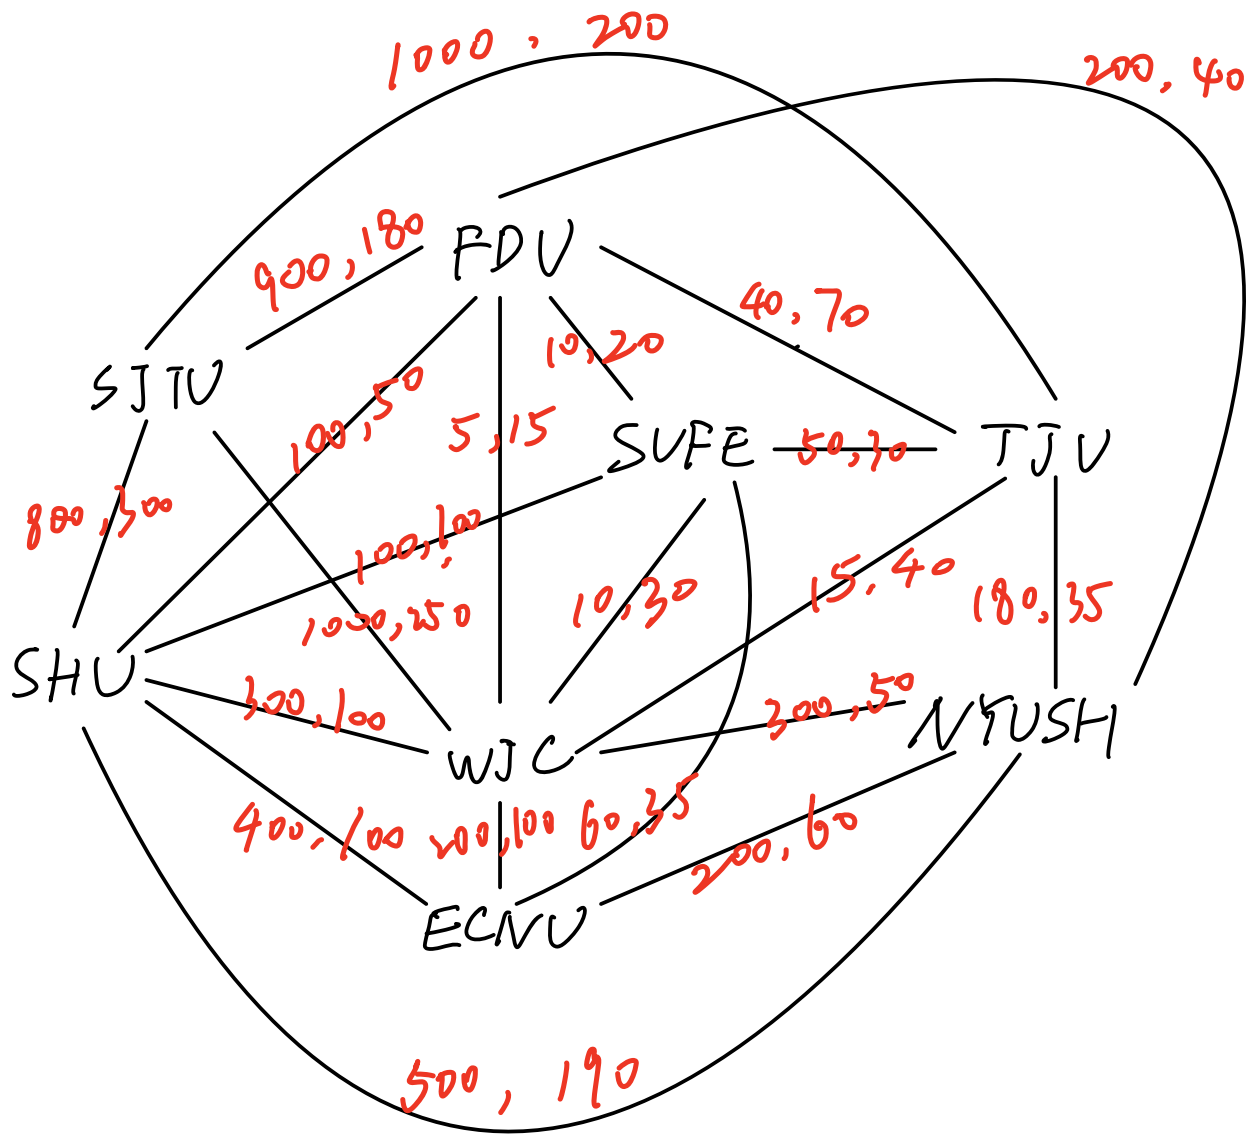 1000, 200
200, 40
900, 180
FDU
40, 70
10, 20
SJTU
100, 50
5, 15
SUFE
50, 30
TJU
800, 300
100, 100
1000, 250
10, 30
15, 40
180, 35
SHU
300, 100
300, 50
NYUSH
WJC
400, 100
200, 100
60, 35
200, 60
ECNU
500, 190